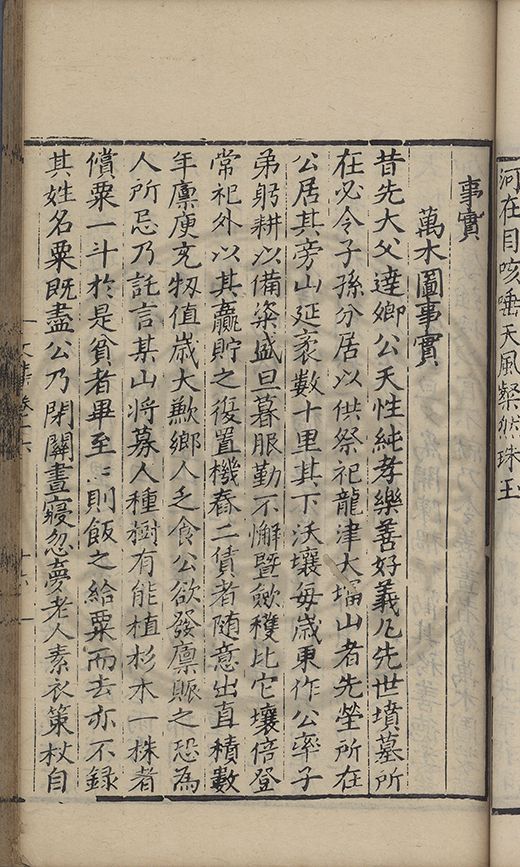 河在目咳唾天風粲然珠玉
事實
萬木圖事實
昔先大父達卿公天性純孝樂善好義凡先世墳墓所
在必令子孫分居以供祭祀龍津大塯山者先塋所在
公居其旁山延袤數十里其下沃壤每歲東作公率子
弟躬耕以備粢盛旦暮服勤不懈暨斂穫比它壤倍登
常祀外以其贏貯之復置機舂二僨者隨意出直積數
年廩庾充牣值歲大歉鄉人乏食公欲發廩賑之恐為
人所忌乃託言某山將募人種樹有能植杉木一株者
償粟一斗於是貧者畢至〻則飯之給粟而去亦不錄
其姓名粟既盡公乃閉關晝寢忽夢老人素衣策杖自
文集卷之六